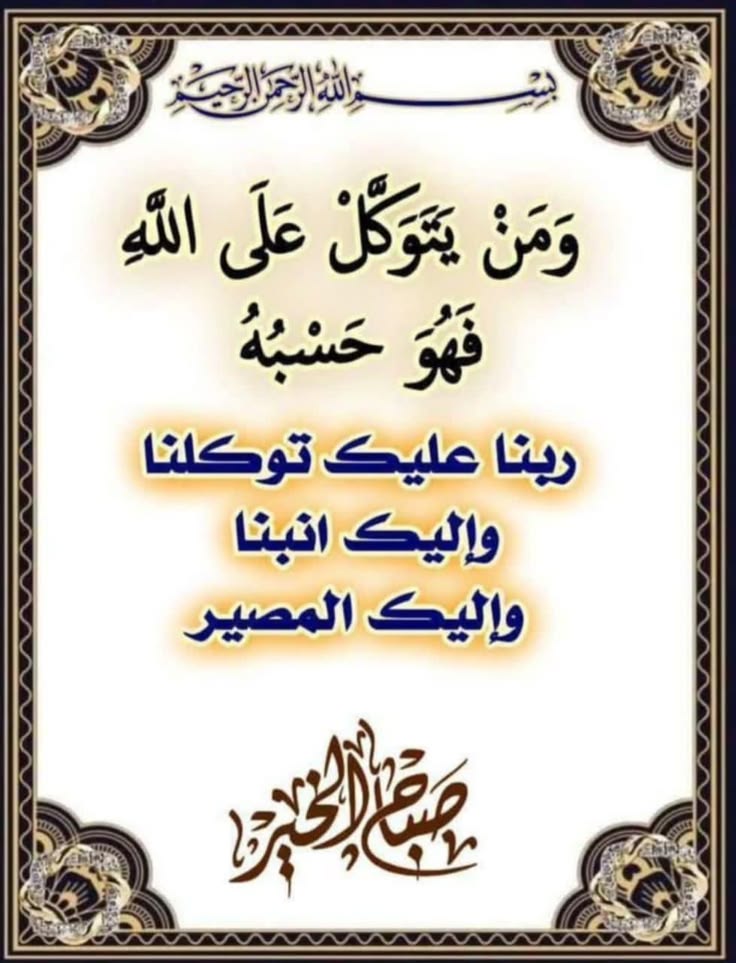 بِسْمِ اللهِ الرَّحْمَٰنِ الرَّحِيْمِ
وَمَنْ يَتَوَكَّلْ عَلَى اللَّهِ
فَهُوَ حَسْبُهُ
ربنا عليك توكلنا
وإليك انبنا
وإليك المصير
صباح الخير